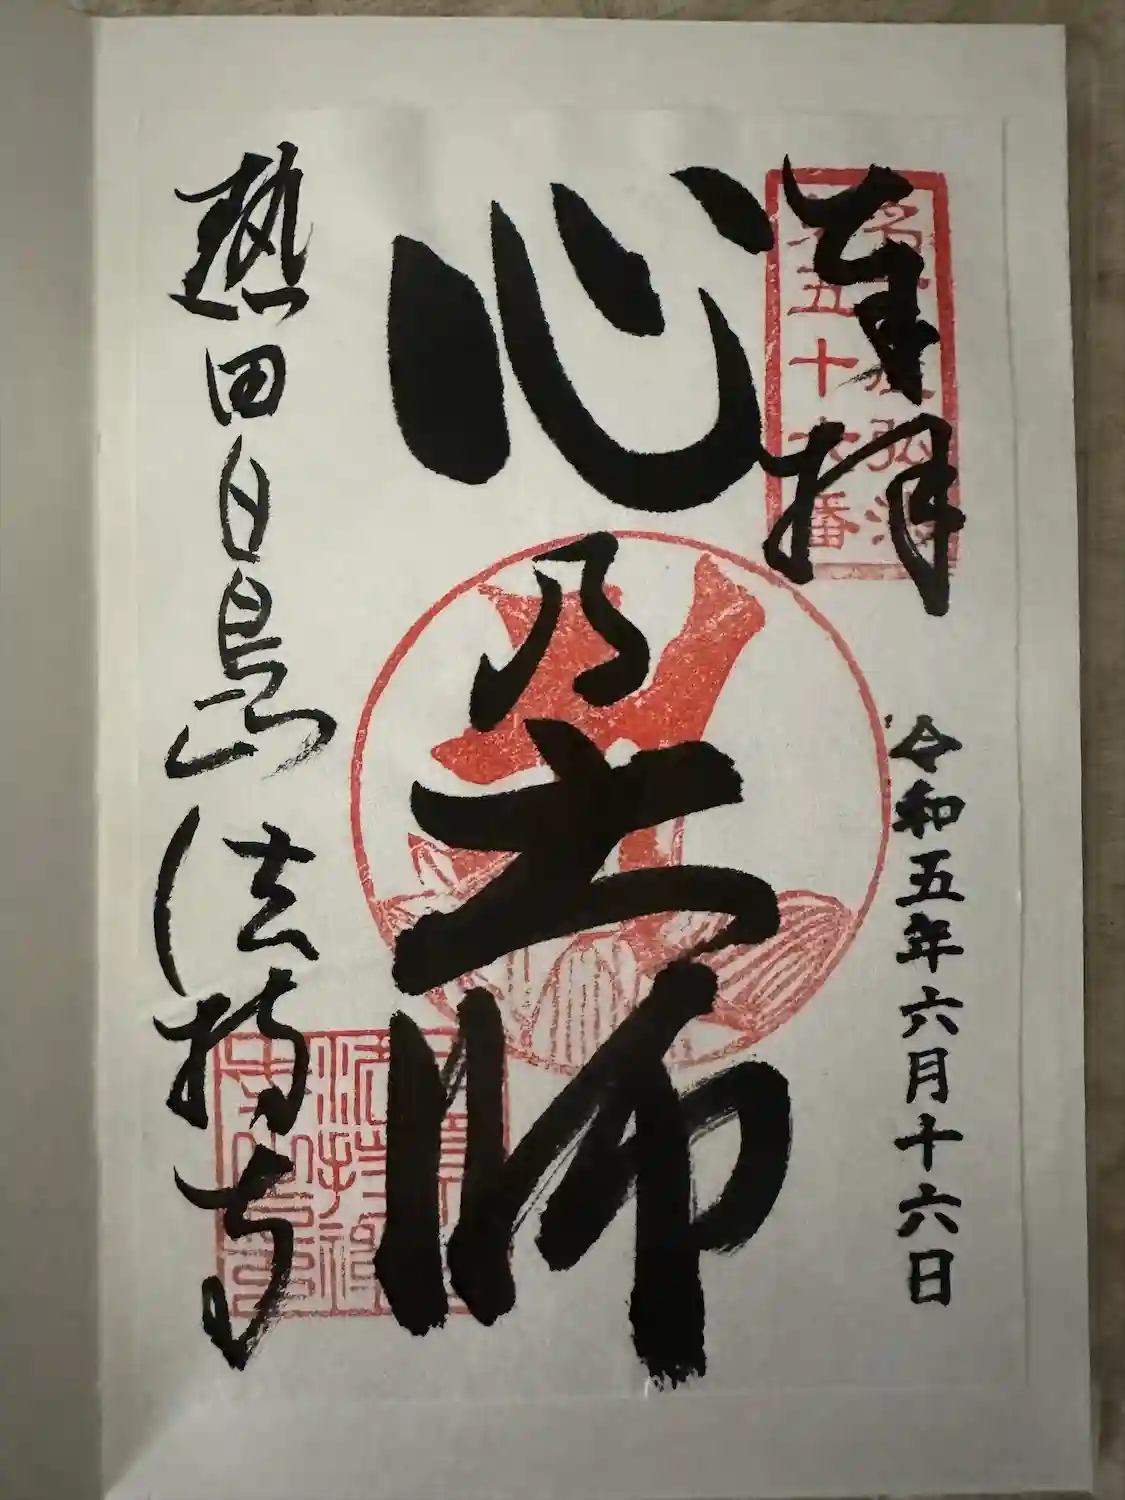 奉拝
名古屋弘法
第五十六番
令和五年六月十六日
心乃大師
熱田白鳥山
法持寺